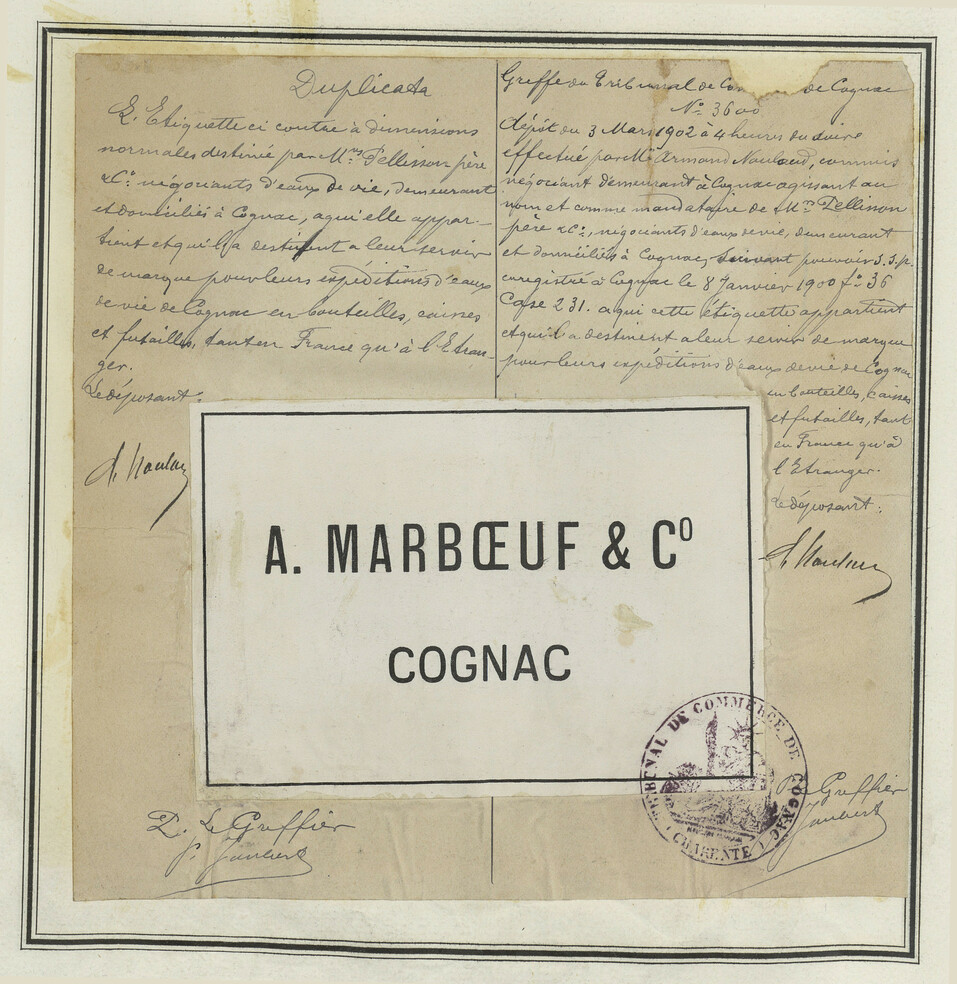 Duplicata
L'Etiquette ci contre à dimensions
normales destinée par Mrs Pellisson père
& Co négociants d'eaux de vie, demeurant
et domiciliés à Cognac, a qui elle appar-
tient et qu'il a destinent a leur servir
de marque pour leurs expéditions d'eaux
de vie de Cognac en bouteilles, caisses
et futailles, tant en France qu'à l'Etran-
ger.
Le déposant:
Greffe du Tribunal de de Cognac
No 3600
dépôt du 3 Mars 1902 à 4 heures du soir
effectué par Mr Armand Naulaud, commis
négociant demeurant à Cognac agissant au
nom et comme mandataire de Mrs Pellisson
père & Co, négociants d'eaux de vie, demeurant
et domiciliés à Cognac, suivant pouvoir S.S.p.
enregistré à Cognac le 8 Janvier 1900 fo 36
Case 231. a qui cette étiquette appartient
et qu'il a destinent a leur servir de marque
pour leurs expéditions d'eaux de vie de Cognac
en bouteilles, caisses
et futailles, tant
en France qu'à
l'Etranger.
Le déposant:
A. MARBŒUF & Co
COGNAC
TRIBUNAL DE COMMERCE DE COGNAC
(CHARENTE)
P. Le Greffier
P. Greffier